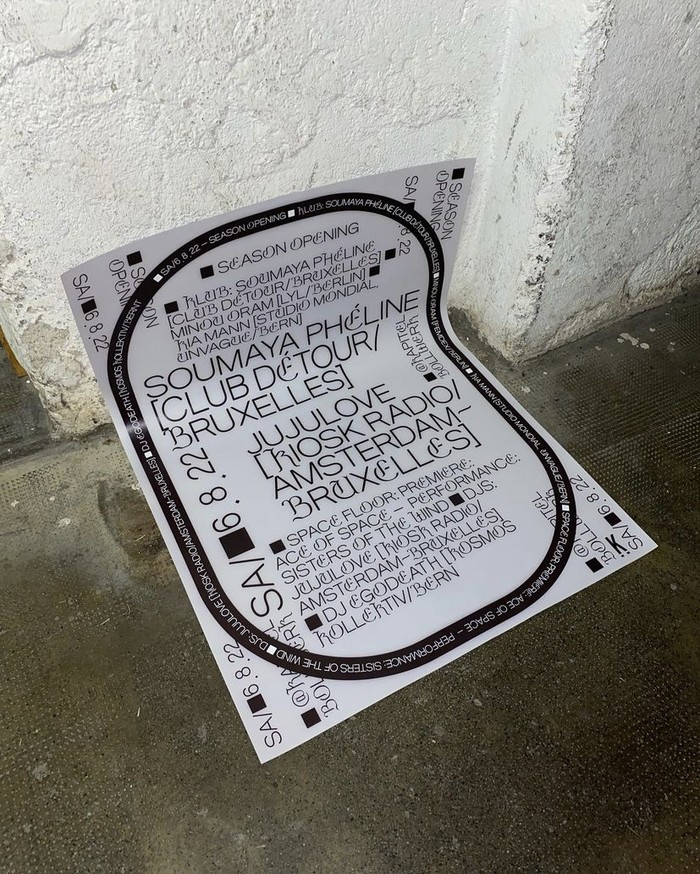 ■ SA/6.8.22 – SEASON OPENING ■ KLUB: SOUMAYA PHÉLINE [CLUB DÉTOUR/BRUXELLES]
HA MANN [STUDIO MONDIAL UNVAGUE/BERN] ■ SPACE FLOOR: PREMIERE: ACE OF SPACE – PERFORMANCE: SISTERS OF THE WIND ■ DJS: JUJULOVE [KIOSK RADIO/AMSTERDAM–BRUXELLES] ■ DJ EGODEATH [KOSMOS KOLLEKTIV/BERN]
SA/■6.8.22
■ SEASON OPENING
■ SEASON OPENING
■ SEASON OPENING
■ KLUB: SOUMAYA PHÉLINE
[CLUB DÉTOUR/BRUXELLES] ■
MINOU ORAM [LYL/BERLIN] ■
HA MANN [STUDIO MONDIAL
UNVAGUE/BERN]
SOUMAYA PHÉLINE
[CLUB DÉTOUR/
BRUXELLES]
SA/■6.8.22
JUJULOVE
[KIOSK RADIO/
AMSTERDAM–
BRUXELLES]
■ SPACE FLOOR: PREMIERE:
ACE OF SPACE – PERFORMANCE:
SISTERS OF THE WIND ■ DJS:
JUJULOVE [KIOSK RADIO/
AMSTERDAM–BRUXELLES]
■ DJ EGODEATH [KOSMOS
KOLLEKTIV/BERN
SA/■6.8.22
SA/■6.8.22